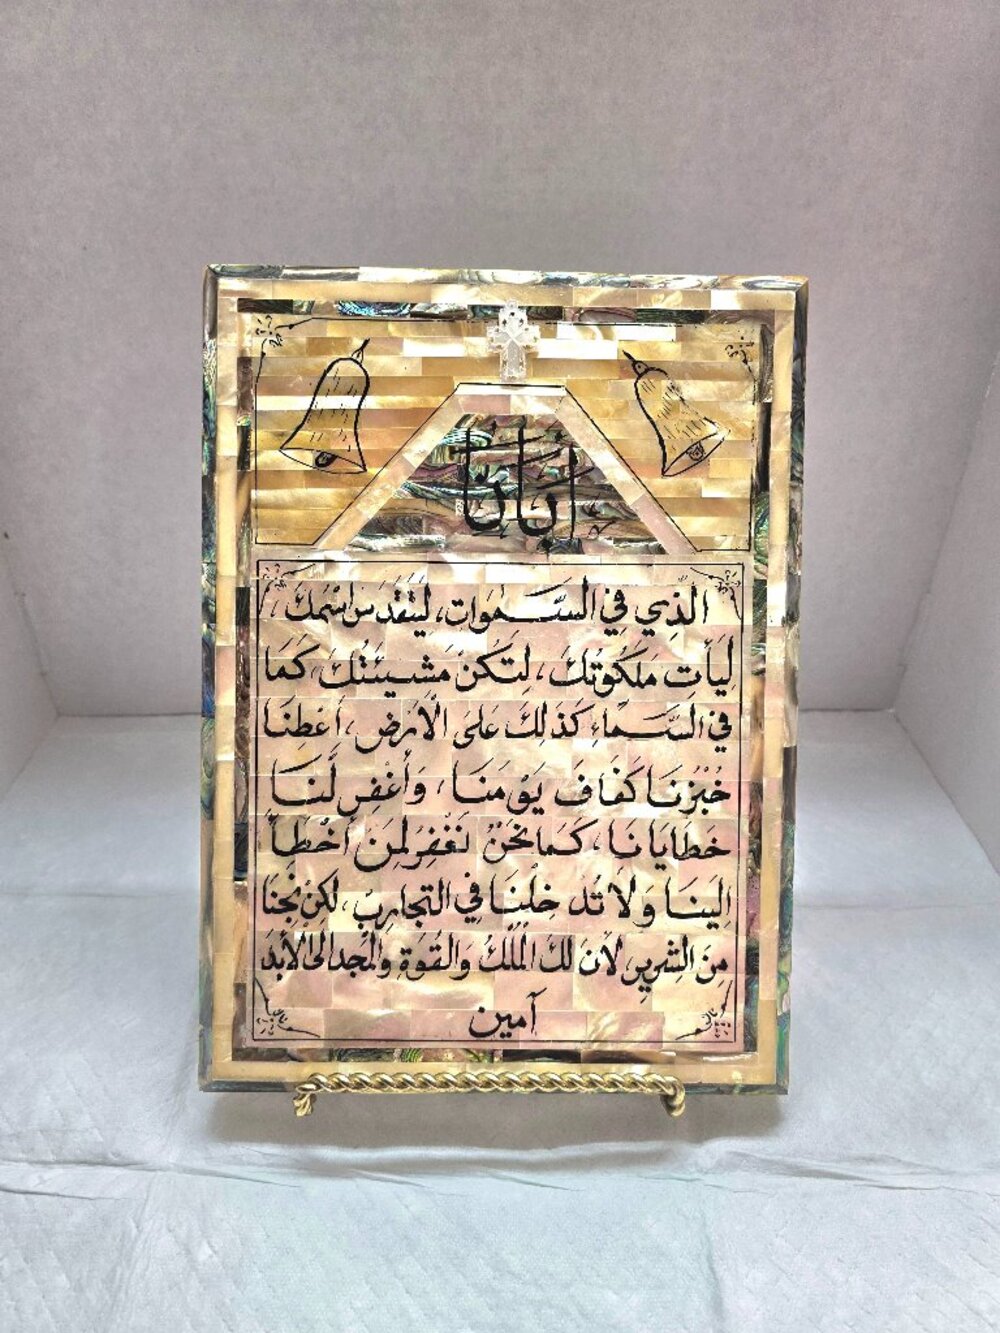 أبانا
الذي في السَّموات، ليتقدس اسمك،
ليأت ملكوتك، لتكن مشيئتك كما
في السَّماء كذلك على الأرض، أعطنا
خبزنا كفاف يومنا، وأغفر لنا
خطايانا، كما نحن نغفر لمن أخطأ
الينا ولا تدخلنا في التجارب، لكن نجنا
من الشرير لأن لك الملك والقوة والمجد الى الأبد
آمين